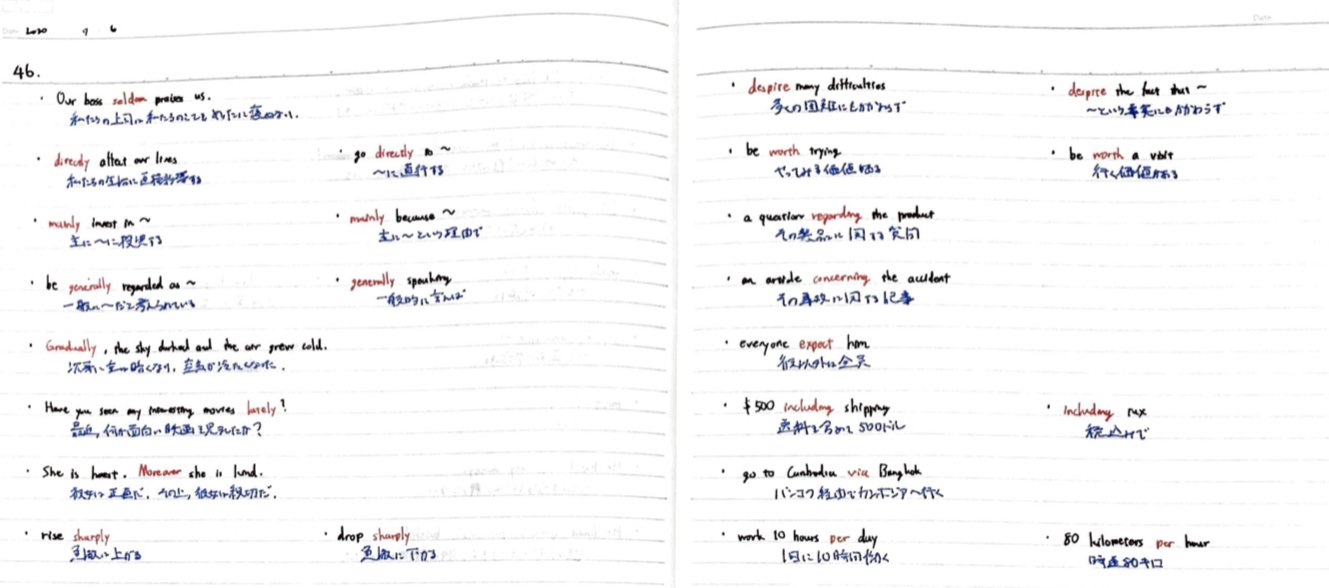 Date 2020 9 6
46.
・Our boss seldom praises us.
私たちの上司は私たちのことをめったに褒めない。
・directly affect our lives
私たちの生活に直接影響する
・go directly to ~
~に直行する
・mainly invest in ~
主に~に投資する
・mainly because ~
主に~という理由で
・be generally regarded as ~
一般に~だと考えられている
・generally speaking
一般的に言えば
・Gradually, the sky darked and the air grew cold.
次第に空は暗くなり、空気が冷たくなった。
・Have you seen any interesting movies lately?
最近、何か面白い映画を見ましたか?
・She is honest. Moreover she is kind.
彼女は正直だ。その上、彼女は親切だ。
・rise sharply
急激に上がる
・drop sharply
急激に下がる
Date
・despire many difficulties
多くの困難にもかかわらず
・despire the fact that ~
~という事実にもかかわらず
・be worth trying
やってみる価値がある
・be worth a visit
行く価値がある
・a question regarding the product
その製品に関する質問
・an article concerning the accident
その事故に関する記事
・everyone expect him
彼以外は全員
・$500 including shipping
送料を含めて500ドル
・including tax
税込みで
・go to Cambodia via Bangkok
バンコク経由でカンボジアへ行く
・work 10 hours per day
1日に10時間働く
・80 kilometers per hour
時速80キロ